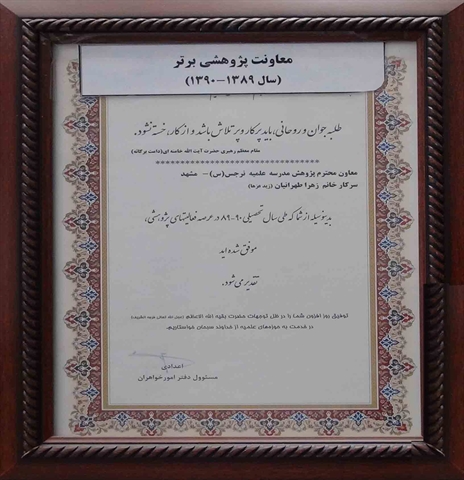 معاونت پژوهشی برتر
(سال ۱۳۸۹-۱۳۹۰)
طلبه جوان و روحانی، باید پر کار و پر تلاش باشد و از کار، خسته نشود.
مقام معظم رهبری حضرت آیت الله خامنه ای (دامت برکاته)
معاون محترم پژوهش مدرسه علمیه نرجس(س)- مشهد
سرکار خانم زهرا طهرانیان (زید عزها)
بدینوسیله از شما که طی سال تحصیلی ۹۰-۸۹ در عرصه فعالیتهای پژوهشی،
موفق شده اید
تقدیر می شود.
توفیق روز افزون شما را در ظل توجهات حضرت بقیه الله الاعظم (عجل الله تعالی فرجه الشریف)
در خدمت به حوزه‌های علمیه از خداوند سبحان خواستاریم.
اعدادی
مسئوول دفتر امور خواهران